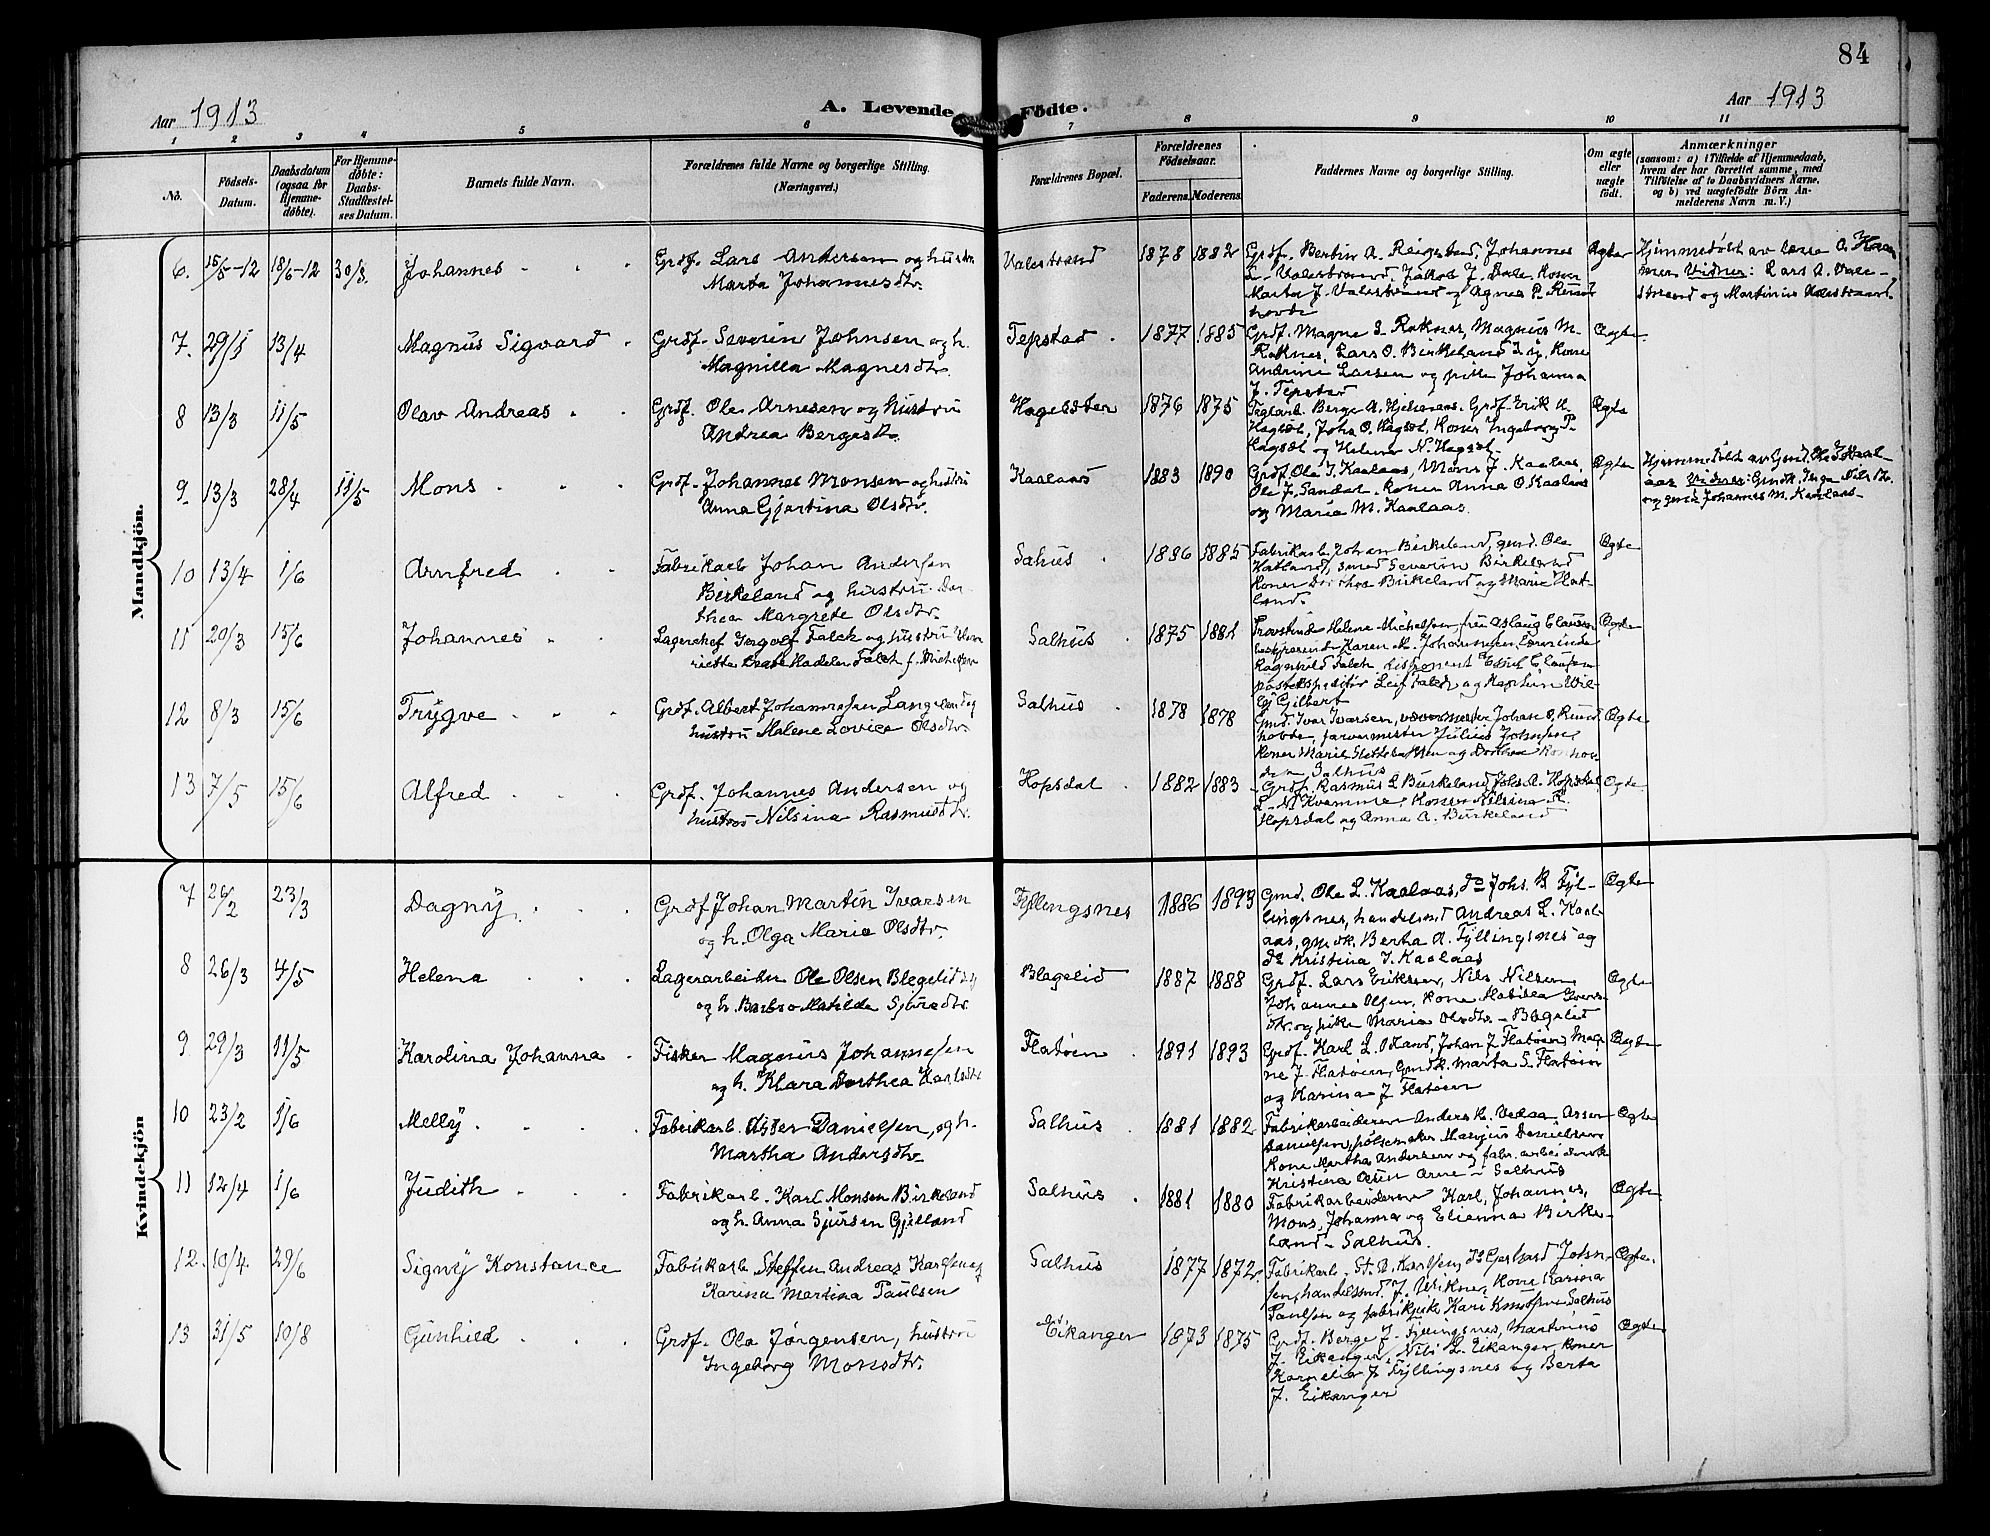 84
Aar 1913
A. Levende Födte.
Aar 1913
1 2 3 4 5 6 7 8 9 10 11
No.
Födsels-
Datum.
Daabsdatum
(ogsaa for
Hjemme-
døbte).
For Hjemme-
døbte:
Daabs-
Stadfæstel-
ses Datum.
Barnets fulde Navn.
Forældrenes fulde Navne og borgerlige Stilling.
(Næringsvei.)
Forældrenes Bopæl.
Forældrenes
Födselsaar.
Faderens. Moderens.
Faddernes Navne og borgerlige Stilling.
Om ægte
eller
uægte
födt.
Anmærkninger
(saasom: a) i Tilfælde af Hjemmedaab,
hvem der har forrettet samme, med
Tilföielse af to Daabsvidners Navne,
og b) ved uægtefödte Börn An-
melderens Navn m. V.)
Mandkjön.
6. 15/5-12 18/6-12 30/3. Johannes
Grdf. Lars Andersen og hustru
Marta Johannesdtr.
Valestrand 1878 1882
Grdf. Berbin A. Reigstad, Johannes
L. Valestrand, Jakob J. Dale, Koner
Marta J. Valestrand og Agnes P.
Ægte
Hjemmedøbt av Lasse A.
Vidner: Lars A. Vale-
strand og Martinus Valestrand.
7. 29/1 13/4 Magnus Sigvard
Grdf. Severin Johnsen og h.
Magnilla Magnesdtr.
Tepstad 1877 1885
Grdf. Magne S. Roknes, Magnus M.
Roknes, Lars O. Birkeland, Kone
Andrine Larsen og pike Johanna
J. Tepstad
Ægte
8 13/3 11/5 Olav Andreas
Grdf. Ole Arnesen og hustru
Andrea Bergesdtr.
1876 1875
Berge A. Grdf. Erik
John O. Koner Ingeborg P.
og Helene N.
Ægte
9. 13/3 28/4 11/5 Mons
Grdf. Johannes Monsen og hustru
Anna Gjertina Olsdtr.
Kaalaas 1883 1890
Grdf. Ole J. Kaalaas, Mons J. Kaalaas,
Ole J. Sandal, koner Anna O. Kaalaas
og Marie M. Kaalaas.
Ægte
Hjemmedøbt av Gmd. Ole J. Kaal-
aas Vidner: Inga Nilsdtr.
og gmd. Johannes M. Kaalaas
10 13/4 1/6 Arnfred
Fabrikarb. Johan Andersen
Birkeland og hustru Dor-
thea Margrete Olsdtr.
Salhus 1886 1885
Fabrikarb. Johan Birkeland, gmd. Ole
Hatland, smed Severin Birkeland
Koner Dorthea Birkeland og Marie Hat-
land.
Ægte
11 20/3 15/6 Johannes
Lagerchef Ingolf Falck og hustru Hen-
riette Falck f. Michelsen
Salhus 1875 1881
Helene Michelsen, fru Aslaug Clausen
Karen M. Johannesen,
Ragnhild Falck, disponent Clausen
postekspeditör Leif Falck og Kaptein Wil-
Gilbert
Ægte
12 8/3 15/6 Trygve
Grdf. Albert Johannesen Langeland og
hustru Malene Lovice Olsdtr.
Salhus 1878 1878
Gmd. Ivar Ivarsen, Johan O.
farvermester Julius Johnsen,
Koner Marie og
Salhus
Ægte
13 7/5 15/6 Alfred
Grdf. Johannes Andersen og
hustru Nilsina Rasmusdtr.
Hopsdal 1882 1883
Grdf. Rasmus L. Birkeland, Johs. A. Hopsdal
L. N. Kvamme, Koner Nilsina R.
Hopsdal og Anna A. Birkeland
Ægte
Kvindekjön
7 26/2 23/3 Dagny
Grdf Johan Martin Ivarsen
og h. Olga Marie Olsdtr.
Fyllingsnes 1886 1893
Gmd. Ole L. Kaalaas, do Johs. B. Fyl-
lingsnes, handelsmd Andreas L. Kaal-
aas, gmdk. Bertha A. Fyllingsnes og
do Kristina J. Kaalaas
Ægte
8 26/3 4/5 Helena
Lagerarbeider Ole Olsen Blegelid
og h. Barbro Matilde Sjuredtr.
Blegelid 1887 1888
Grdf. Lars Eriksen, Nils Nilsen,
Johannes Olsen, Kone Matilda
og pike Maria Olsdtr. - Blegelid
Ægte
9 29/3 11/5 Karolina Johanna
Fisker Magnus Johannesen
og h. Klara Dorthea Karlsdtr
Flatöen 1891 1893
Grdf. Karl L. Johan J. Flatöen, Mag-
ne J. Flatöen, Gmdk. Marta S. Flatöen
og Karina J. Flatöen
Ægte
10 23/2 1/6 Melly
Fabrikarb. Danielsen, og h.
Martha Andersdtr.
Salhus. 1881 1882
Fabrikarbeiderne Anders K. Vedaa,
Danielsen, pølsemaker Marius Danielsen
Kone Martha Andersen og fabr. arbeidersk
Kristina - Salhus
Ægte
11 12/4 1/6 Judith
Fabrikarb. Karl Monsen Birkeland
og h. Anna Sjursen Gjelland
Salhus 1881 1880
Fabrikarbeiderne Karl, Johannes,
Mons, Johanna og Elienna Birke-
land - Salhus.
Ægte
12. 10/4. 29/6 Signy Konstance
Fabrikarb. Steffen Andreas Karlsen og
Karina Martina Paulsen
Salhus 1877 1872.
Fabrikarb. St. A. Karlsen, do Gerhard John-
sen, handelsmd. J. Kone Karina
Paulsen og fabrikpike Kari Knudsen Salhus
Ægte.
13 31/5 10/8 Gunhild
Grdf. Ola Jørgensen, hustru
Ingeborg Monsdtr.
Eikanger 1873 1875
Grdf. Berge J. Fyllingsnes, Martinus
J. Eikanger, Nils L. Eikanger, Koner
Kornelia J. Fyllingsnes og Berta
J. Eikanger
Ægte